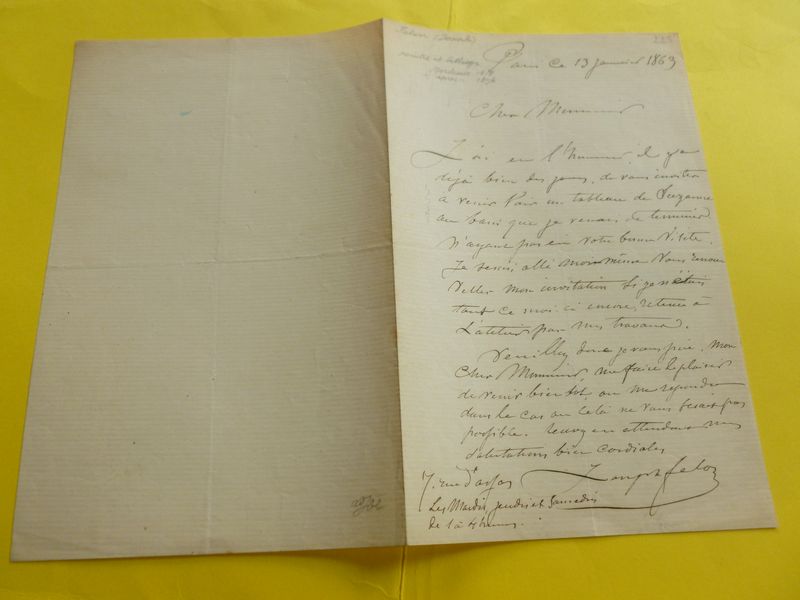 Felon (Joseph)
peintre et lithogr.
Bordeaux
après
Paris Ce 13 janvier 1863
Cher Monsieur
J'ai eu l'honneur, il y a
déjà bien des jours, de vous inviter
a venir voir un tableau de Suzanne
au bain que je venais de terminer
n'ayant pas eu votre bonne visite.
Je serais allé moi même vous renou
veller mon invitation si je n'étais
tout ce mois-ci encore, retenu à
L'atelier par mes travaux.
Veuillez donc je vous prie, Mon
Cher Monsieur, me faire le plaisir
de venir bientôt, ou me repondre
dans le cas ou cela ne vous serait pas
possible. recevez en attendant mes
salutations bien cordiales
Joseph felon
7, rue d'assas
Les Mardis, jeudis et Samedis
de 1 à 4 heures.